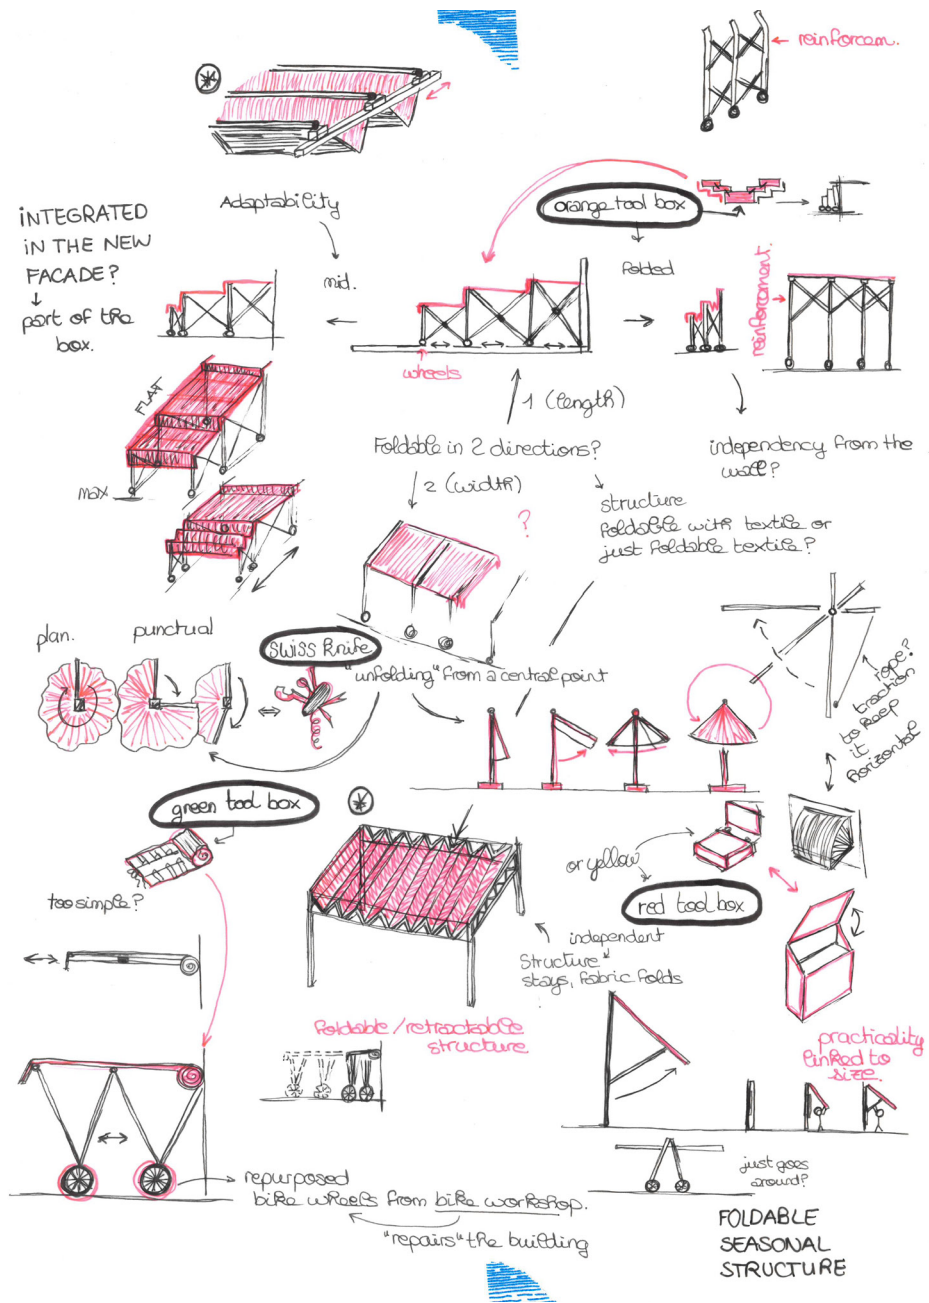 reinforcem.
Adaptability
orange tool box
INTEGRATED
IN THE NEW
FACADE?
part of the
box.
mid.
folded
reinforcement.
wheels
1 (length)
FLAT
max
Foldable in 2 directions?
2 (width)
?
independency from the
wall?
structure
foldable with textile or
just foldable textile?
plan.
punctual
swiss knife
"unfolding" from a central point
rope?
traction
to keep
it
horizontal
green tool box
too simple?
or yellow
red tool box
independent
structure
stays, fabric folds
foldable / retractable
structure
practicality
linked to
size.
repurposed
bike wheels from bike workshop.
"repairs" the building
just goes
around?
FOLDABLE
SEASONAL
STRUCTURE